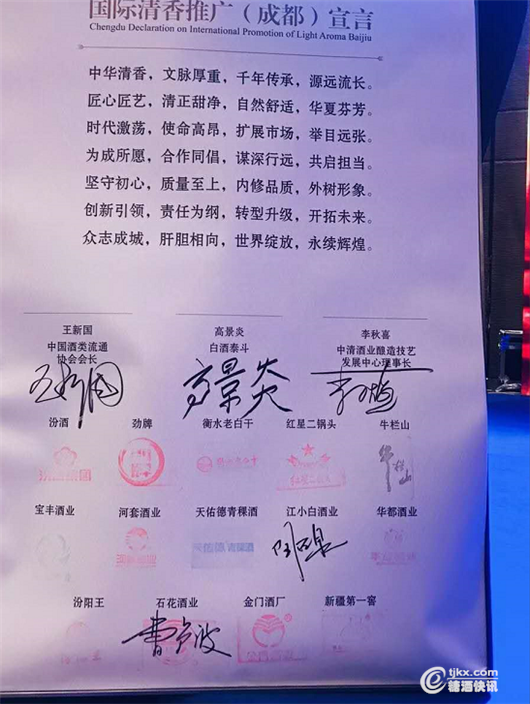 国际清香推广（成都）宣言
Chengdu Declaration on International Promotion of Light Aroma Baijiu
中华清香，文脉厚重，千年传承，源远流长。
匠心匠艺，清正甜净，自然舒适，华夏芬芳。
时代激荡，使命高昂，扩展市场，举目远张。
为成所愿，合作同倡，谋深行远，共启担当。
坚守初心，质量至上，内修品质，外树形象。
创新引领，责任为纲，转型升级，开拓未来。
众志成城，肝胆相向，世界绽放，永续辉煌。
王新国 高景炎 李秋喜
中国酒类流通 白酒泰斗 中清酒业酿造技艺
协会会长 发展中心理事长
王新国 高景炎
汾酒 劲牌 衡水老白干 红星二锅头 牛栏山
牛栏山
宝丰酒业 河套酒业 天佑德青稞酒 江小白酒业 华都酒业
天佑德 青稞酒
汾阳王 石花酒业 金门酒厂 新疆第一窖
曹卫波
tjkx.com
糖酒快讯